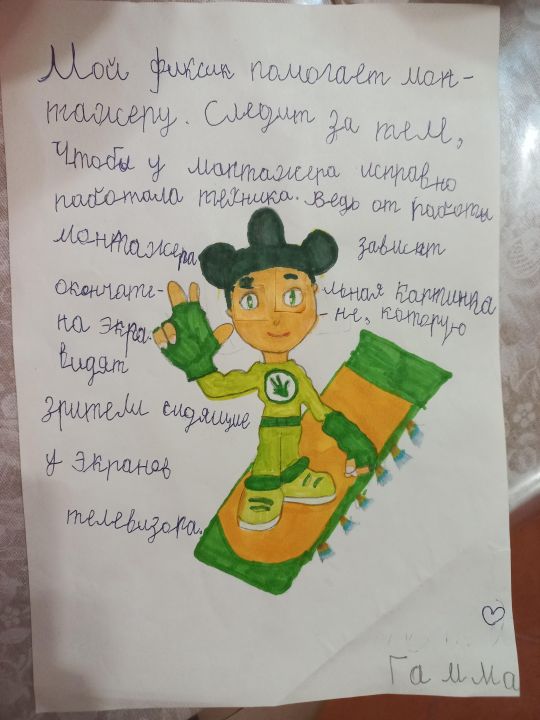 Мой фиксик помогает мон-
тажеру. Следит за тем,
Чтобы у монтажера исправно
работала техника. Ведь от работы
монтажера зависит
окончате- льная картинка
на экра. -не, которую
видят
зрители сидящие
у экранов
телевизора.
Гамма